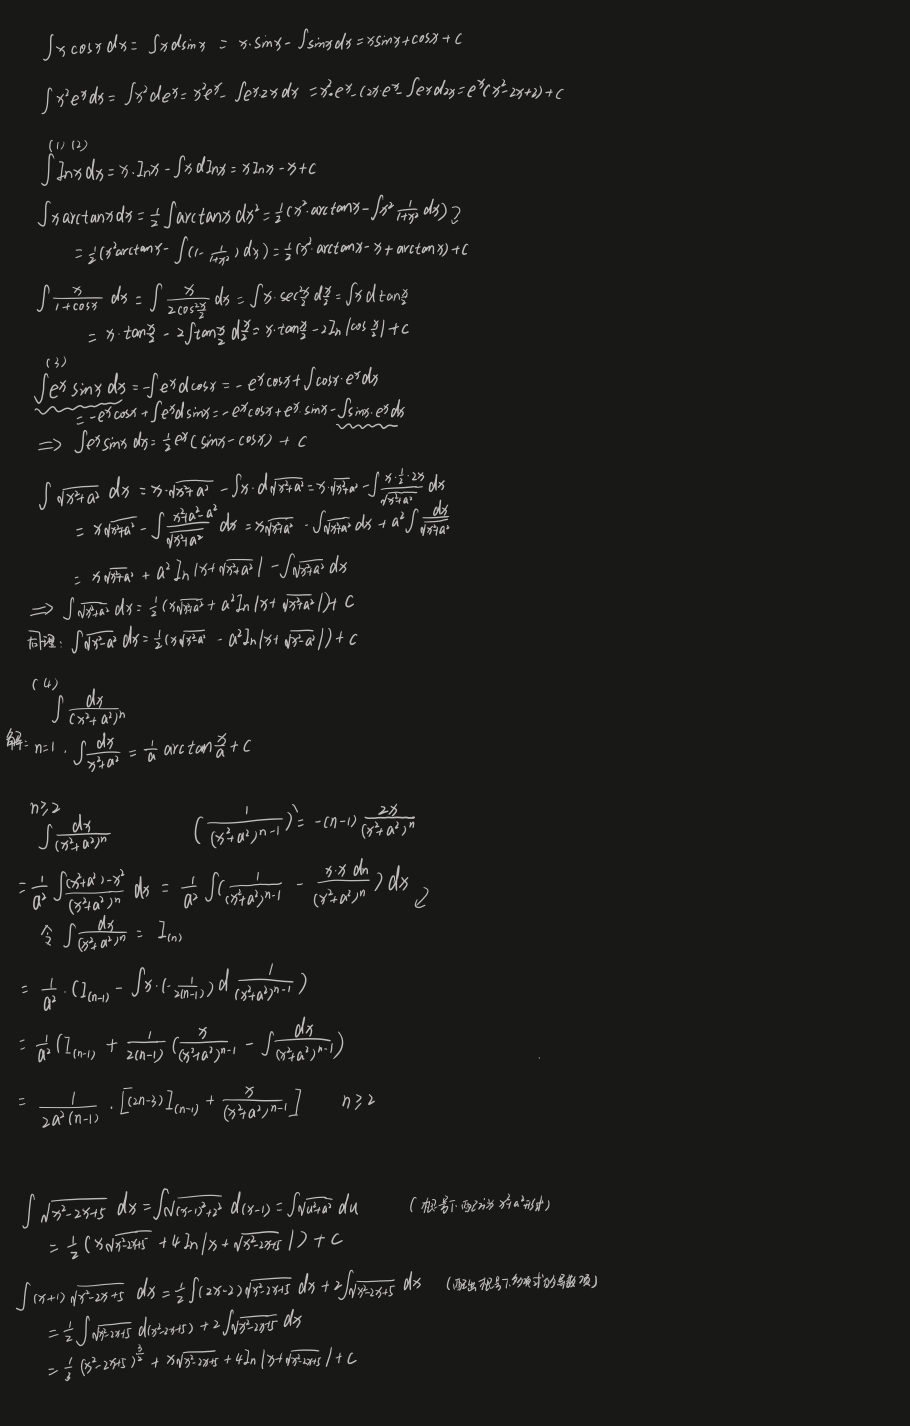 ∫x cosx dx = ∫x dsinx = x·sinx - ∫sinx dx = xsinx + cosx + C
∫x²eˣdx = ∫x²deˣ = x²eˣ - ∫eˣ·2x dx = x²·eˣ - (2x·eˣ - ∫eˣd2x = eˣ(x²-2x+2) + C
(1) (2)
∫Inx dx = x·Inx - ∫x dInx = xInx - x + C
∫x arctanx dx = ½∫arctanx dx² = ½(x²·arctanx - ∫x² 1/(1+x²) dx)
= ½(x²arctanx - ∫(1 - 1/(1+x²)) dx) = ½(x²·arctanx - x + arctanx) + C
∫ x/(1+cosx) dx = ∫ x/(2cos²(x/2)) dx = ∫x·sec²(x/2) d(x/2) = ∫x d tan(x/2)
= x·tan(x/2) - 2∫tan(x/2) d(x/2) = x·tan(x/2) - 2In|cos(x/2)| + C
(3)
∫eˣ sinx dx = -∫eˣdcosx = -eˣcosx + ∫cosx·eˣdx
= -eˣcosx + ∫eˣdsinx = -eˣcosx + eˣ·sinx - ∫sinx·eˣdx
⟹ ∫eˣsinx dx = ½eˣ(sinx - cosx) + C
∫√(x²+a²) dx = x·√(x²+a²) - ∫x·d√(x²+a²) = x·√(x²+a²) - ∫(x·½·2x)/√(x²+a²) dx
= x√(x²+a²) - ∫(x²+a²-a²)/√(x²+a²) dx = x√(x²+a²) - ∫√(x²+a²) dx + a²∫dx/√(x²+a²)
= x√(x²+a²) + a²In|x+√(x²+a²)| - ∫√(x²+a²) dx
⟹ ∫√(x²+a²) dx = ½(x√(x²+a²) + a²In|x+√(x²+a²)|) + C
同理: ∫√(x²-a²) dx = ½(x√(x²-a²) - a²In|x+√(x²-a²)|) + C
(4)
∫ dx/(x²+a²)ⁿ
解: n=1. ∫dx/(x²+a²) = 1/a arctan(x/a) + C
n≥2
∫dx/(x²+a²)ⁿ (1/(x²+a²)ⁿ⁻¹)` = -(n-1) 2x/(x²+a²)ⁿ
= 1/a² ∫((x²+a²)-x²)/(x²+a²)ⁿ dx = 1/a² ∫(1/(x²+a²)ⁿ⁻¹ - x·x dn/(x²+a²)ⁿ) dx
令 ∫dx/(x²+a²)ⁿ = I₍ₙ₎
= 1/a² · (I₍ₙ₋₁₎ - ∫x·(-1/(2(n-1))) d 1/(x²+a²)ⁿ⁻¹)
= 1/a² (I₍ₙ₋₁₎ + 1/(2(n-1)) (x/(x²+a²)ⁿ⁻¹ - ∫dx/(x²+a²)ⁿ⁻¹)
= 1/(2a²(n-1)) · [(2n-3)I₍ₙ₋₁₎ + x/(x²+a²)ⁿ⁻¹] n≥2
∫√(x²-2x+5) dx = ∫√((x-1)²+2²) d(x-1) = ∫√(u²+a²) du (根号下配 x²+a²形式)
= ½(x√(x²-2x+5) + 4In|x+√(x²-2x+5)|) + C
∫(x+1)√(x²-2x+5) dx = ½∫(2x-2)√(x²-2x+5) dx + 2∫√(x²-2x+5) dx (配出根号下多项式的导数项)
= ½∫√(x²-2x+5) d(x²-2x+5) + 2∫√(x²-2x+5) dx
= ⅓(x²-2x+5)^(3/2) + x√(x²-2x+5) + 4In|x+√(x²-2x+5)| + C